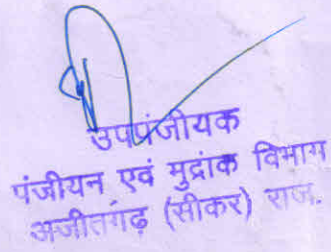 उपपंजीयक
पंजीयन एवं मुद्रांक विभाग
अजीतगढ़ (सीकर) राज.